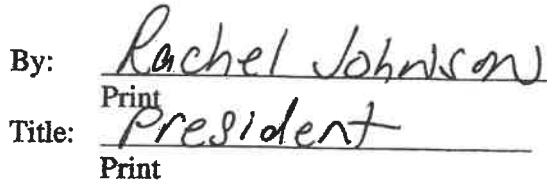 By: Rachel Johnson
Print
Title: President
Print